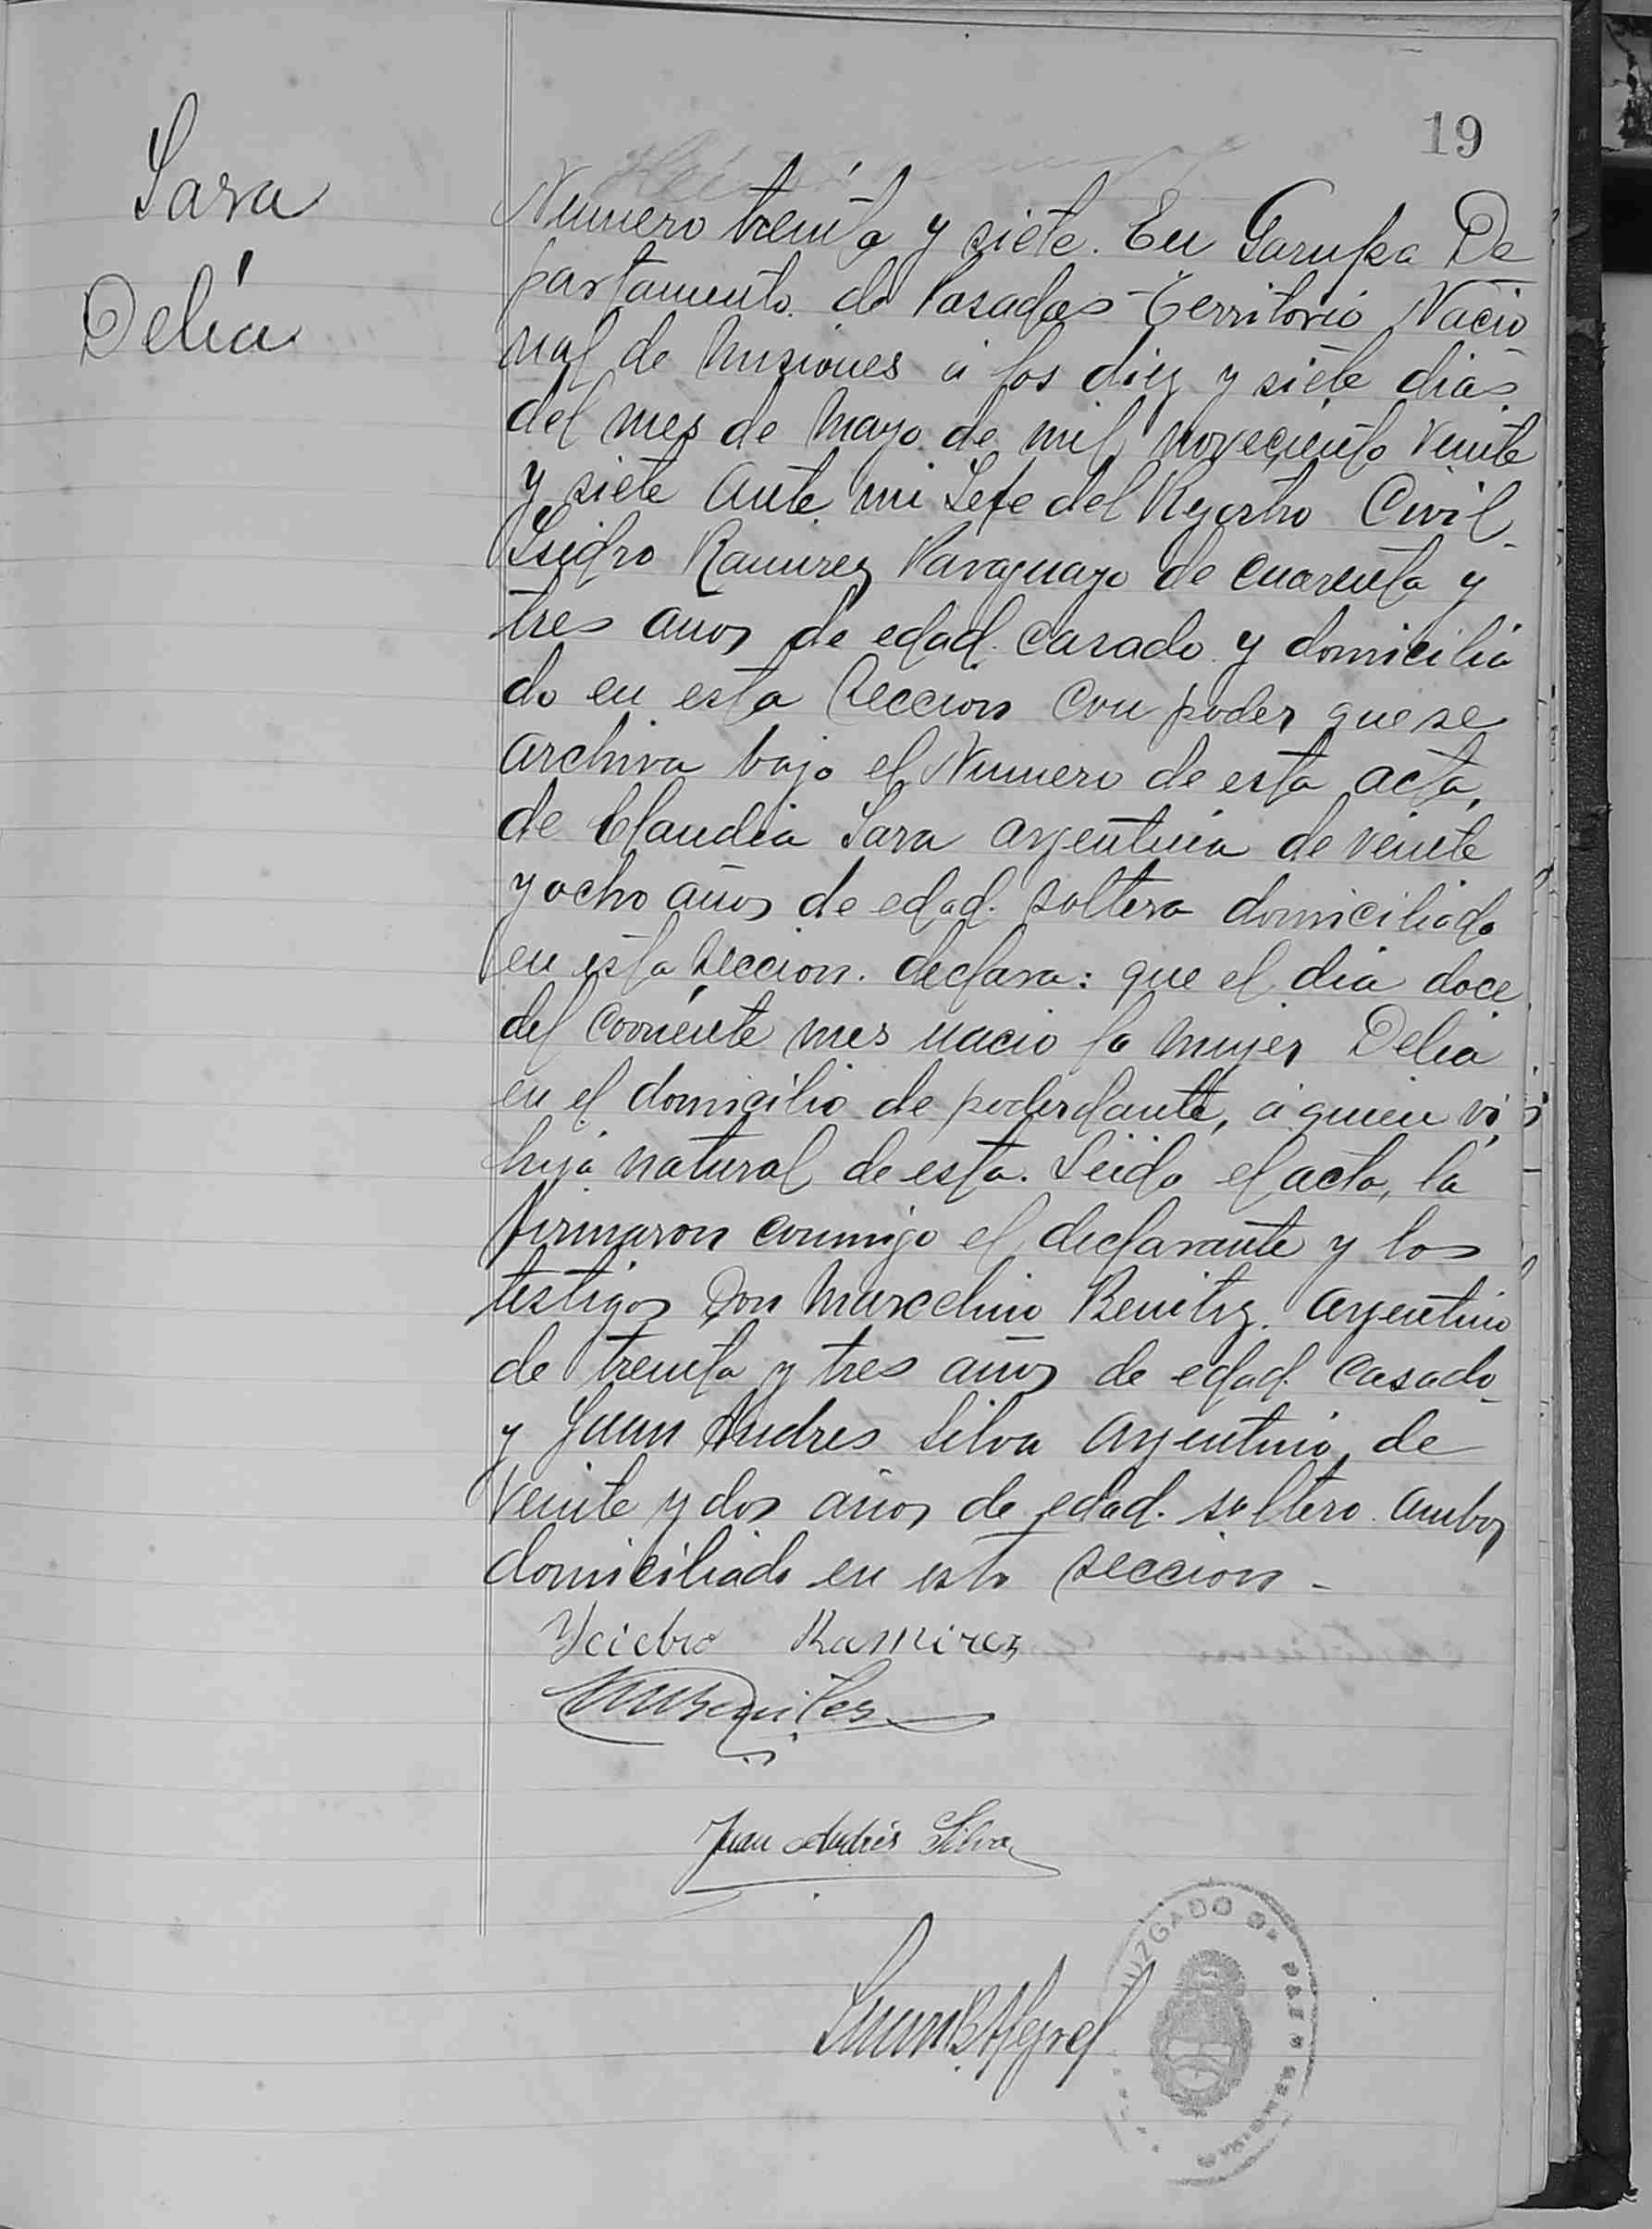 19
Sara
Delia
Numero treinta y siete. En Garupa De
partamento de Posadas Territorio Nacio
nal de Misiones á los diez y siete dias
del mes de Mayo de mil noveciento veinte
y siete ante mi Jefe del Registro Civil
Isidro Ramirez Paraguayo de cuarenta y
tres años de edad. casado y domicilia
do en esta Seccion con poder que se
archiva bajo el Numero de esta acta,
de Claudia Sara argentina de veinte
y ocho años de edad. soltera domiciliada
en esta seccion. declara: que el dia doce
del corriente mes nacio la mujer Delia
en el domicilio de poderdante, á quien vi
hija natural de esta. Leida el acta, la
firmaron conmigo el declarante y los
testigos Don Marcelino Benitez. argentino
de treinta y tres años de edad. casado
y Juan Andres Silva argentino de
veinte y dos años de edad. soltero. ambos
domiciliado en esta seccion -
Ycidro Ramirez
MBenites
Juan Andrés Silva
JUZGADO DE PAZ